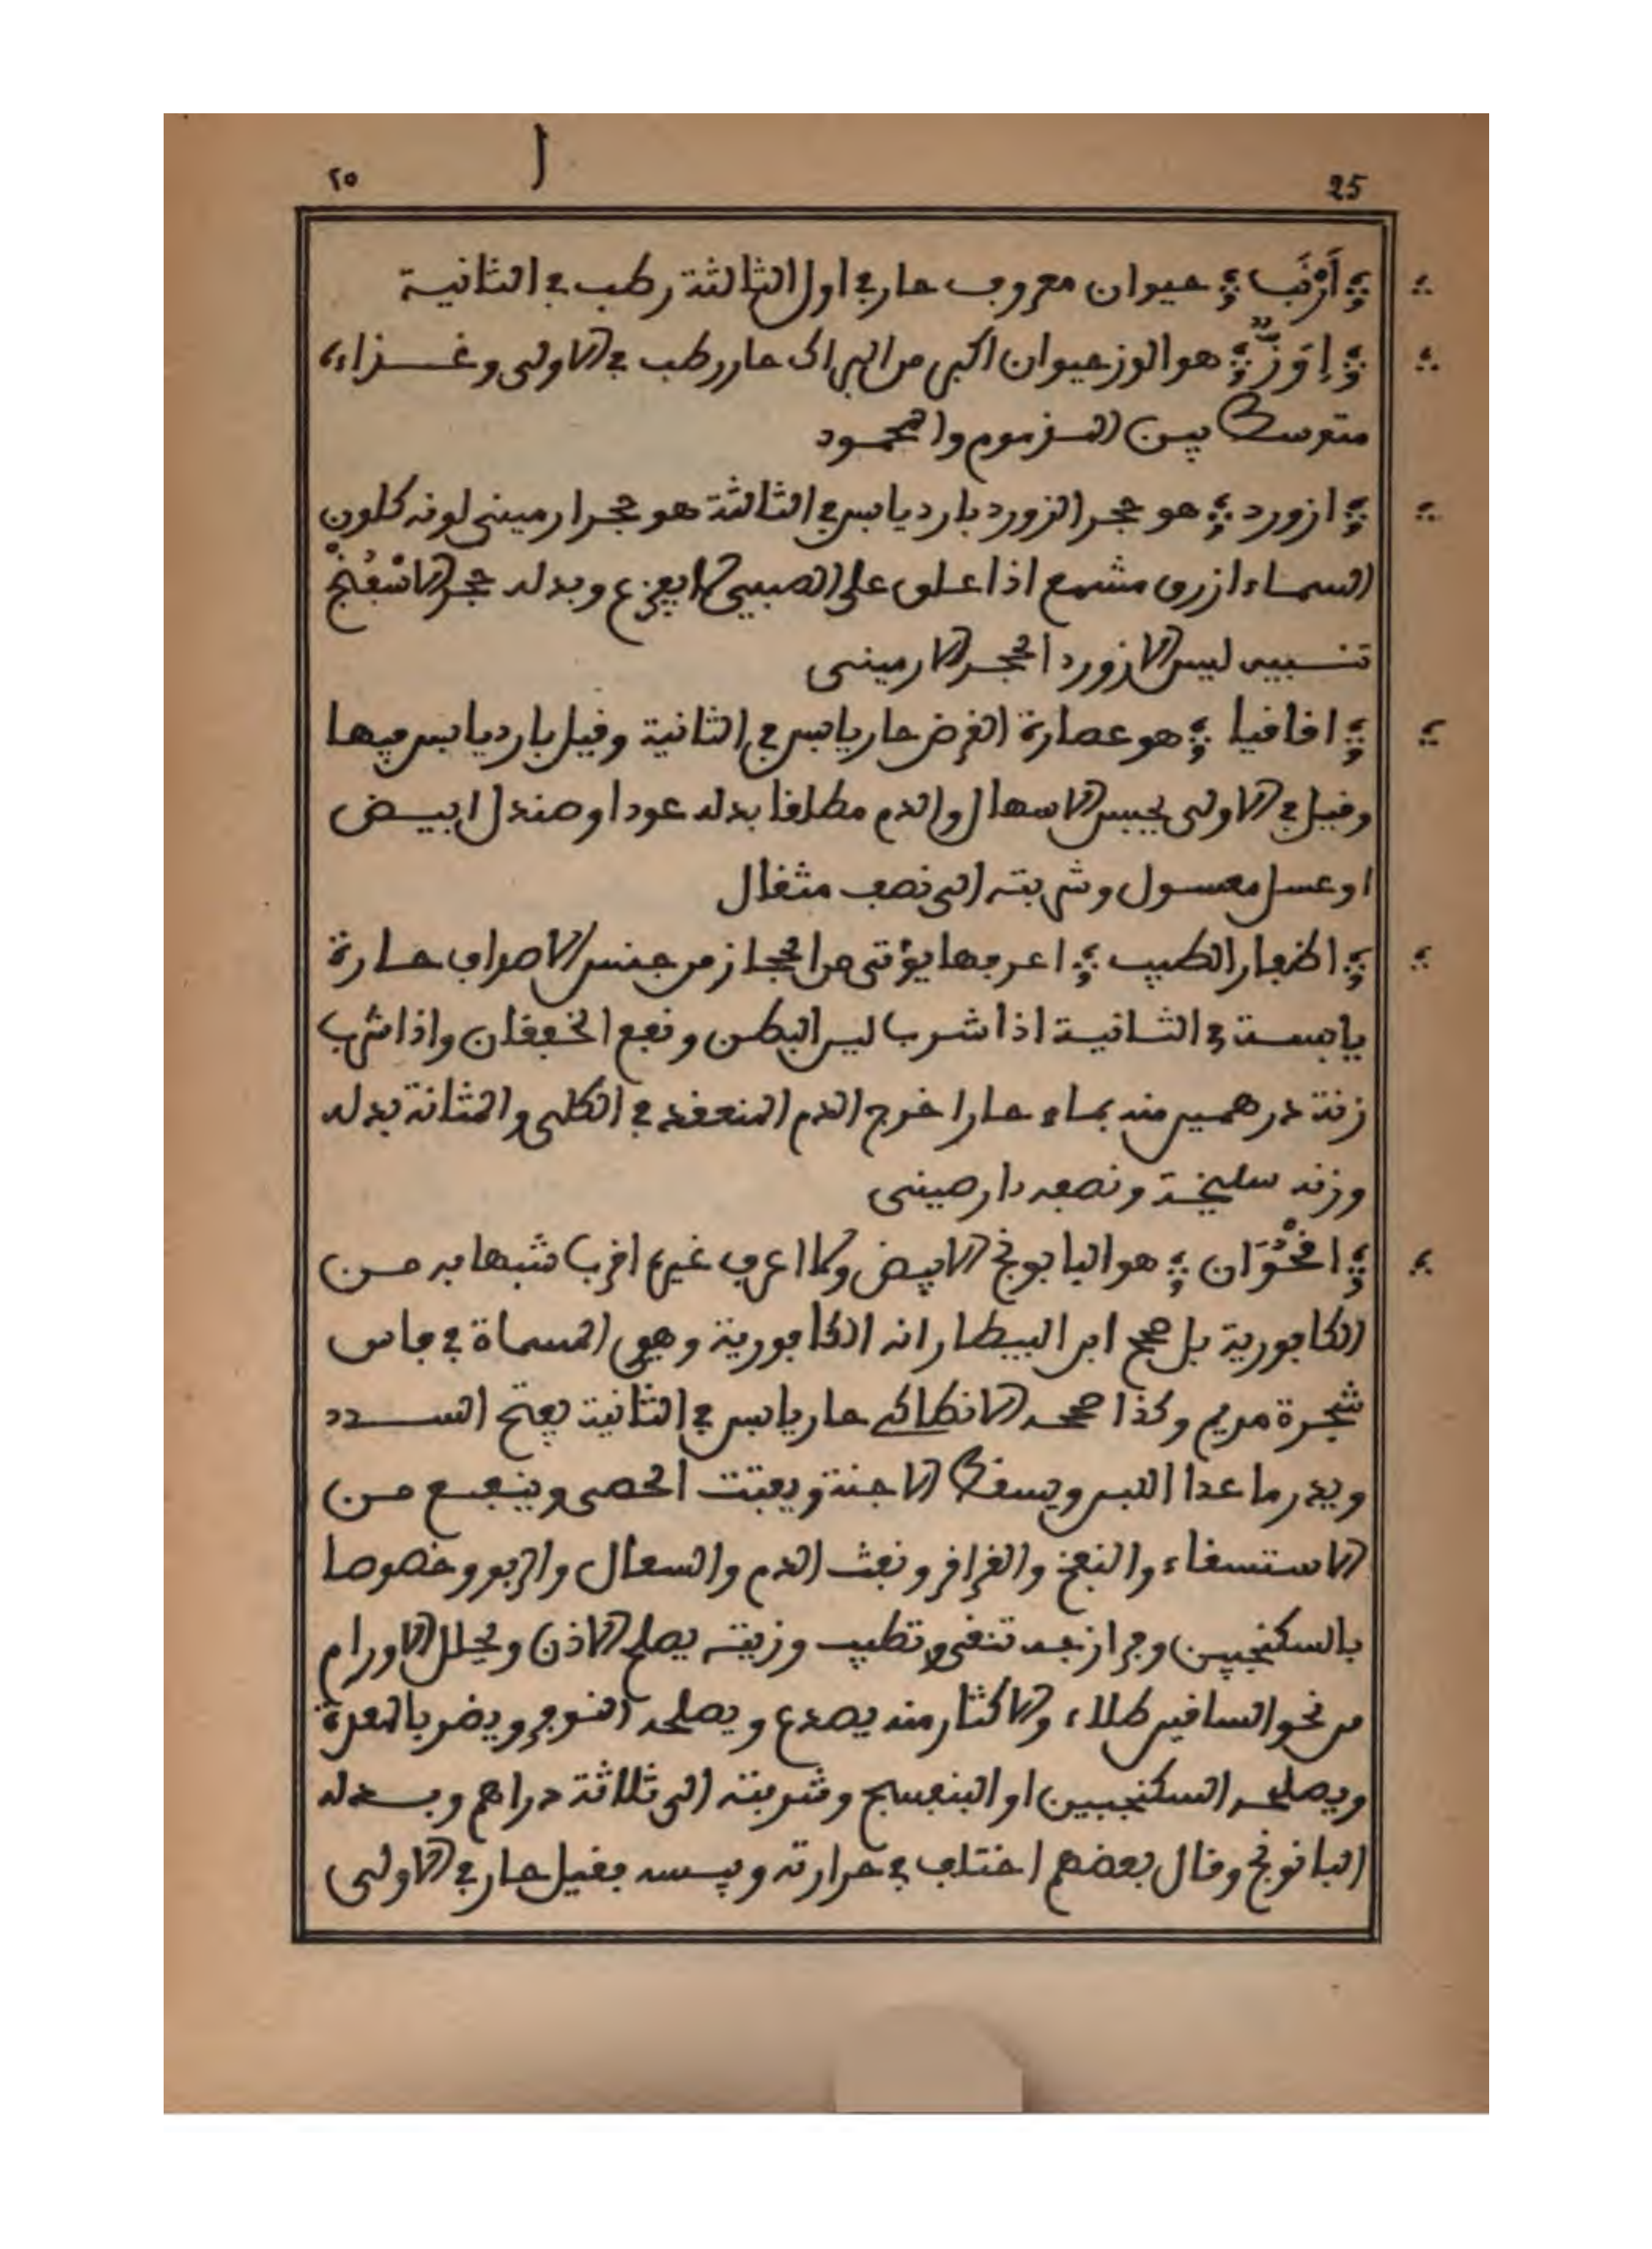 ٢٥ ا 25
أَرْنَب حيوان معروف حار في اول الثالثة رطب في الثانية
إوَزّ هو الوز حيوان اكبر من البراك حار رطب في الاولى وغذاءه
متوسط بين المذموم والمحمود
ازورد هو حجر الزورد بارد يابس في الثالثة هو حجر ارميني لونه كلون
السماء ازرق مشمع اذا علق على الصبي لا يفزع وبدله حجر الاسفنج
تنبيه ليس الازورد الحجر الارميني
اقاقيا هو عصارة القرض حار يابس في الثانية وقيل بارد يابس فيها
وقيل في الاولى يحبس الاسهال والدم مطلقا بدله عودا وصندل ابيض
او عسل مغسول وشربته الى نصف مثقال
اظفار الطيب اعرفها يؤتى من الحجاز من جنس الاصداف حارة
يابسة في الثانية اذا شرب لين البطن ونفع الخفقان واذا شرب
زنة درهمين منه بماء حار اخرج الدم المنعقد في الكلى والمثانة بدله
وزنه سليخة ونصفه دارصيني
اقحُوَان هو البابونج الابيض ولا اعرف غيره اقرب شبها به من
الكافورية بل صحح ابن البيطار انه الكافورية وهي المسماة في فاس
شجرة مريم وكذا صححه الانطاكي حار يابس في الثانية يفتح السدد
ويدر ما عدا اللبن ويسقط الاجنة ويفتت الحصى وينفع من
الاستسقاء والنفخ والقراقر ونفث الدم والسعال والربو وخصوصا
بالسكنجبين وفرازجه تنقي وتطيب وزيته يصلح الاذن ويحلل الاورام
من نحو الساقين طلاء والاكثار منه يصدع ويصلحه النوم ويضر بالمعدة
ويصلحه السكنجبين او البنفسج وشربته الى ثلاثة دراهم وبدله
البابونج وقال بعضهم اختلف في حرارته ويبسه فقيل حار في الاولى